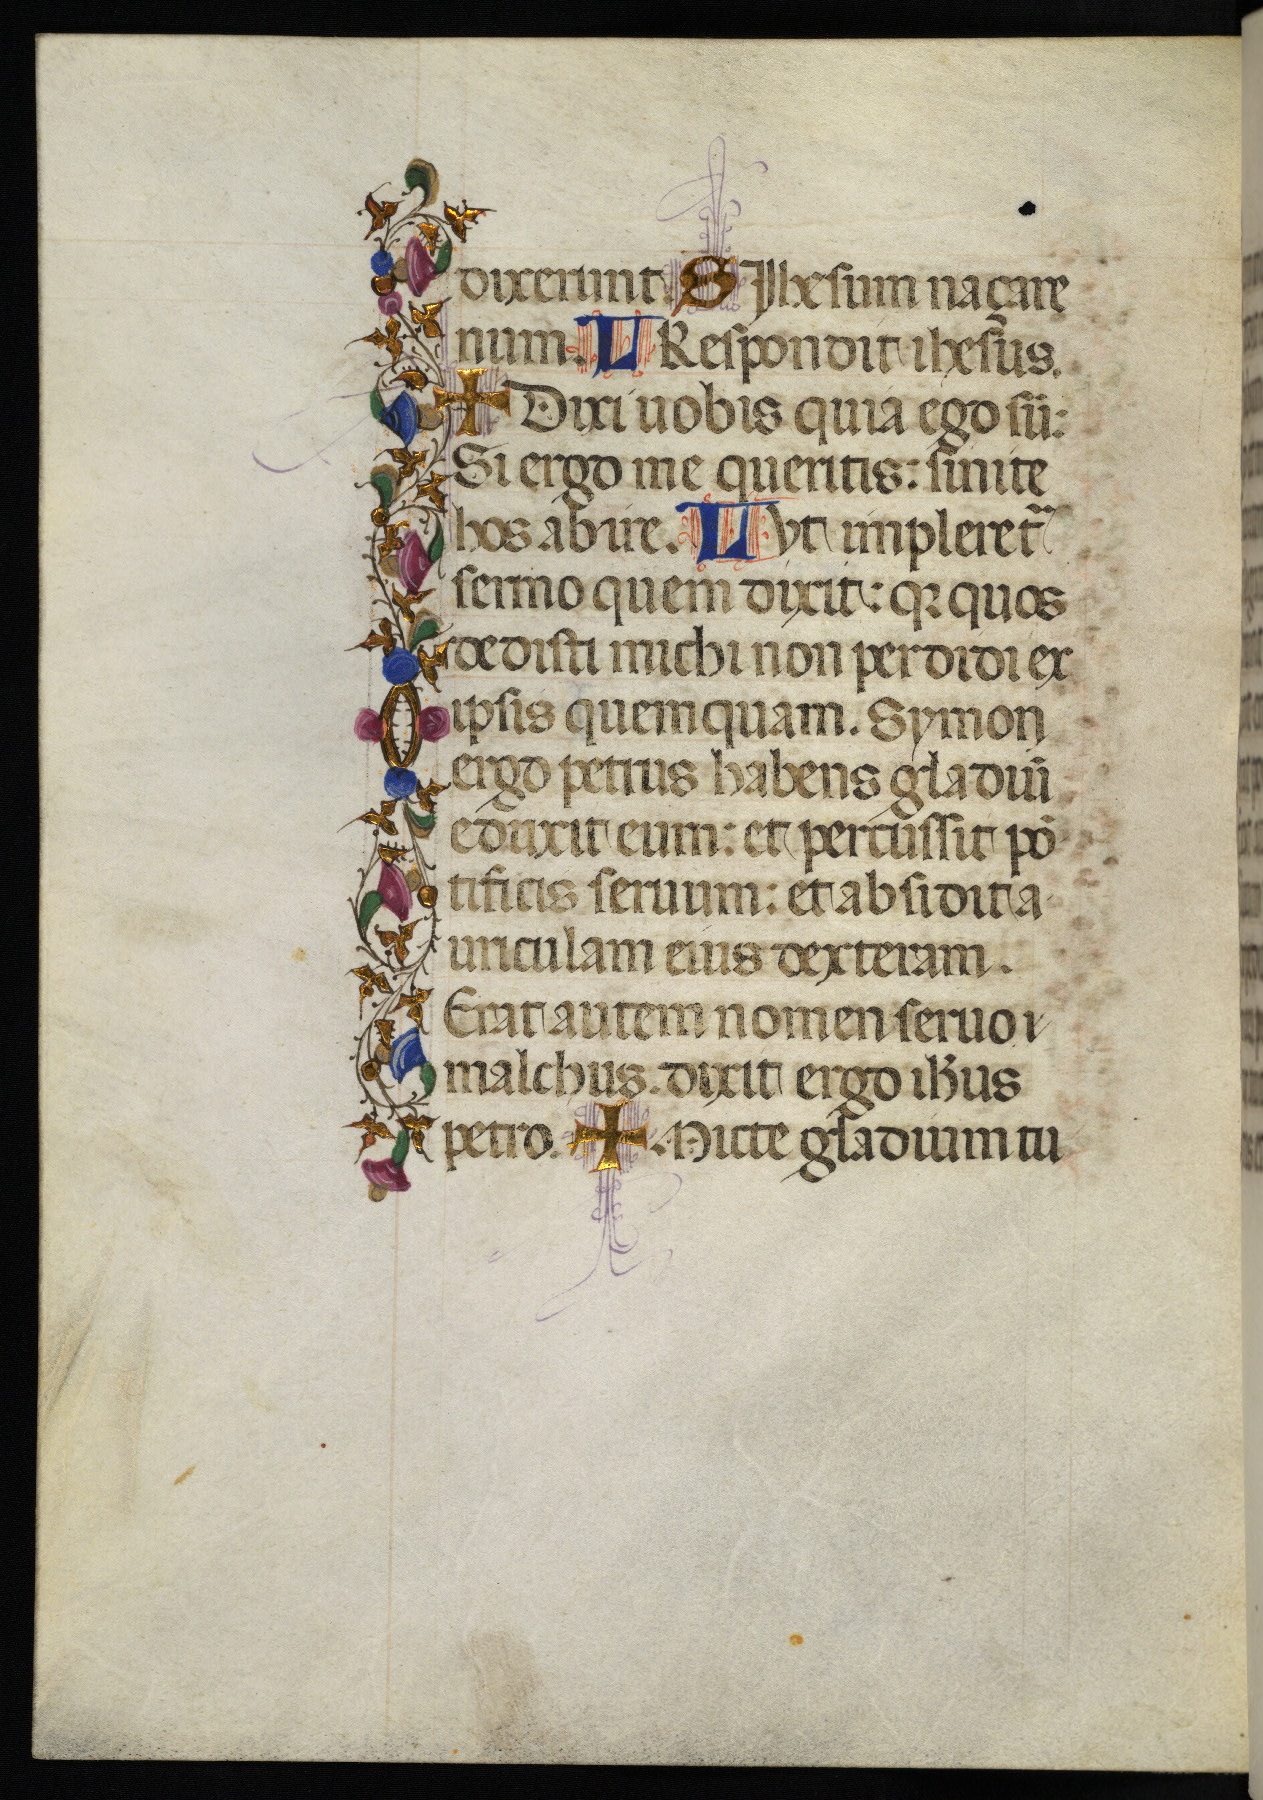 dixerunt. S Jhesum naçare
num. L Respondit ihesus.
+ Dixi uobis quia ego sũ:
Si ergo me queritis: sinite
hos abire. L Vt impleret᷑
sermo quem dixit: qꝛ quos
dedisti michi non perdidi ex
ipsis quemquam. Symon
ergo petrus habens gladiũ
eduxit eum: et percussit põ
tificis seruum: et absidit a
uriculam eius dexteram.
Erat autem nomen seruo
malchus. dixit ergo ihus
petro. + Micte gladium tu